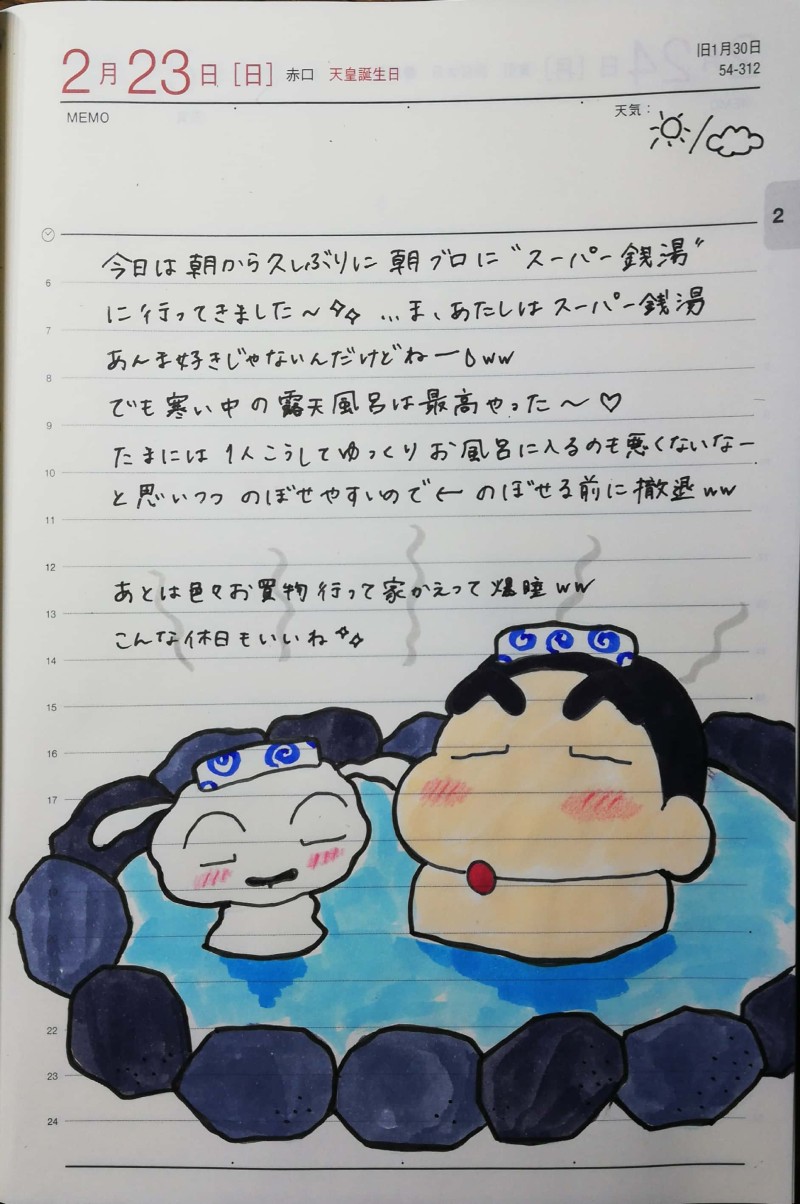 2月23日[日] 赤口 天皇誕生日
旧1月30日
54-312
MEMO
天気：
2
今日は朝から久しぶりに朝ブロに“スーパー銭湯”
に行ってきました〜✧✧ …ま、あたしはスーパー銭湯
あんま好きじゃないんだけどねーww
でも寒い中の露天風呂は最高やった〜♡
たまには1人こうしてゆっくりお風呂に入るのも悪くないなー
と思いつつ のぼせやすいので← のぼせる前に撤退ww
あとは色々お買物行って家かえって爆睡ww
こんな休日もいいね✧✧
6
7
8
9
10
11
12
13
14
15
16
17
22
23
24